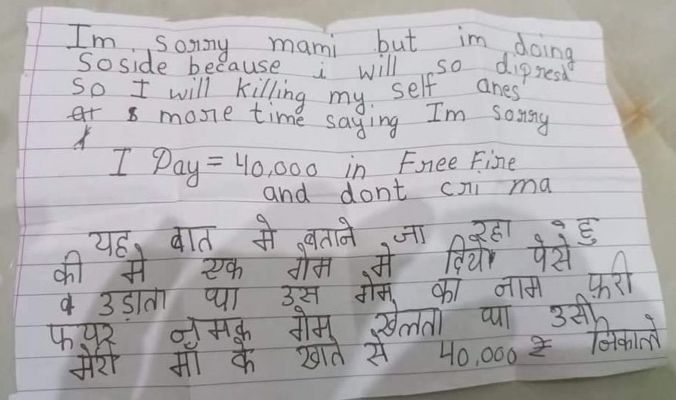 Im sorry mami but im doing
soside because i will so dipresd
so I will killing my self anes
more time saying Im sorry
I Pay = 40,000 in Free Fire
and dont cri ma
यह बात मे बताने जा रहा हु
की मे एक गेम मे दिये पेसे
उड़ाता था उस गेम का नाम फ़री
फायर नमक गेम खेलता था उसी
मेरी माँ के खाते से 40,000 ₹ निकाले